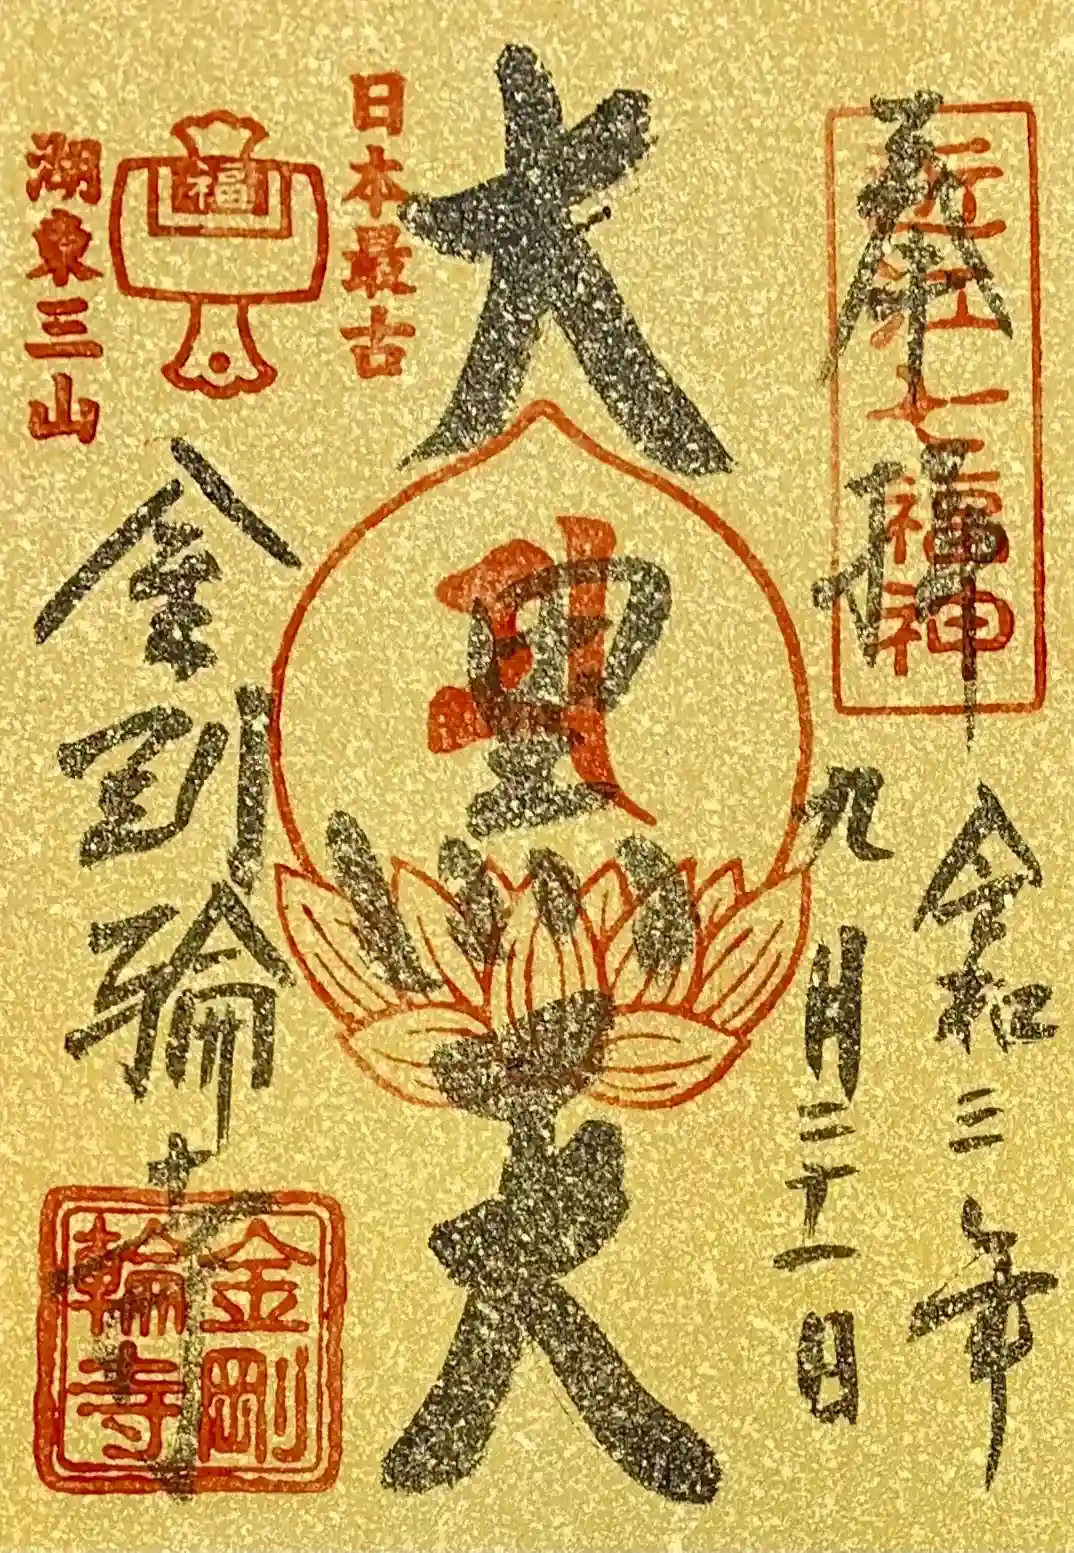 奉拝
近江七福神
令和三年
九月二十一日
大黒天
日本最古
福
湖東三山
金剛輪寺
金剛
輪寺